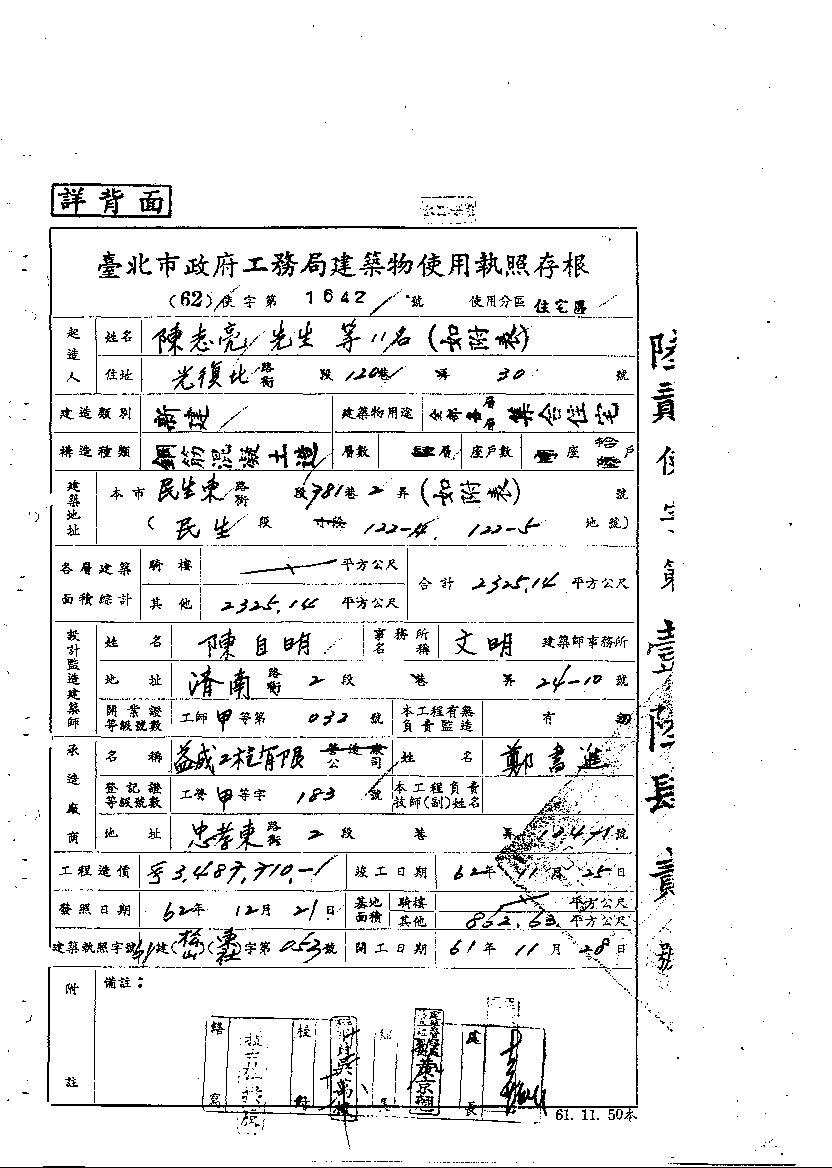 詳背面
臺北市政府工務局建築物使用執照存根
(62)使字第1642號 使用分區 住宅區
起造人 姓名 陳志亮 先生 等11名(如附表)
住址 光復北路街 段120巷 弄30號
建造類別 新建 建築物用途 全部 層 集合住宅
構造種類 鋼筋混凝土造 層數 層 座戶數 座 戶
建築地址 本市 民生東路街 段781巷2弄(如附表)號
(民生段 122-4. 122-5 地號)
各層建築面積綜計 騎樓 平方公尺 合計 2325.14 平方公尺
其他 2325.14 平方公尺
設計監造建築師 姓名 陳自明 事務所名稱 文明 建築師事務所
地址 濟南路街2段 巷 弄24-10號
開業證等級號數 工師甲等第032號 本工程有無負責監造 有
承造廠商 名稱 益成工程有限公司 姓名 鄭書進
登記證等級號數 工營甲等字183號 本工程負責技師(副)姓名
地址 忠孝東路街2段 巷 弄124-1號
工程造價 3,487,710.- 竣工日期 62年11月25日
發照日期 62年12月21日 基地面積 騎樓 平方公尺
其他 862.63. 平方公尺
建築執照字號 61建(松山)(東社)字第053號 開工日期 61年11月28日
附註 備註：
繕寫 校對 長
61.11.50本
陸貳使字第壹陸肆貳號